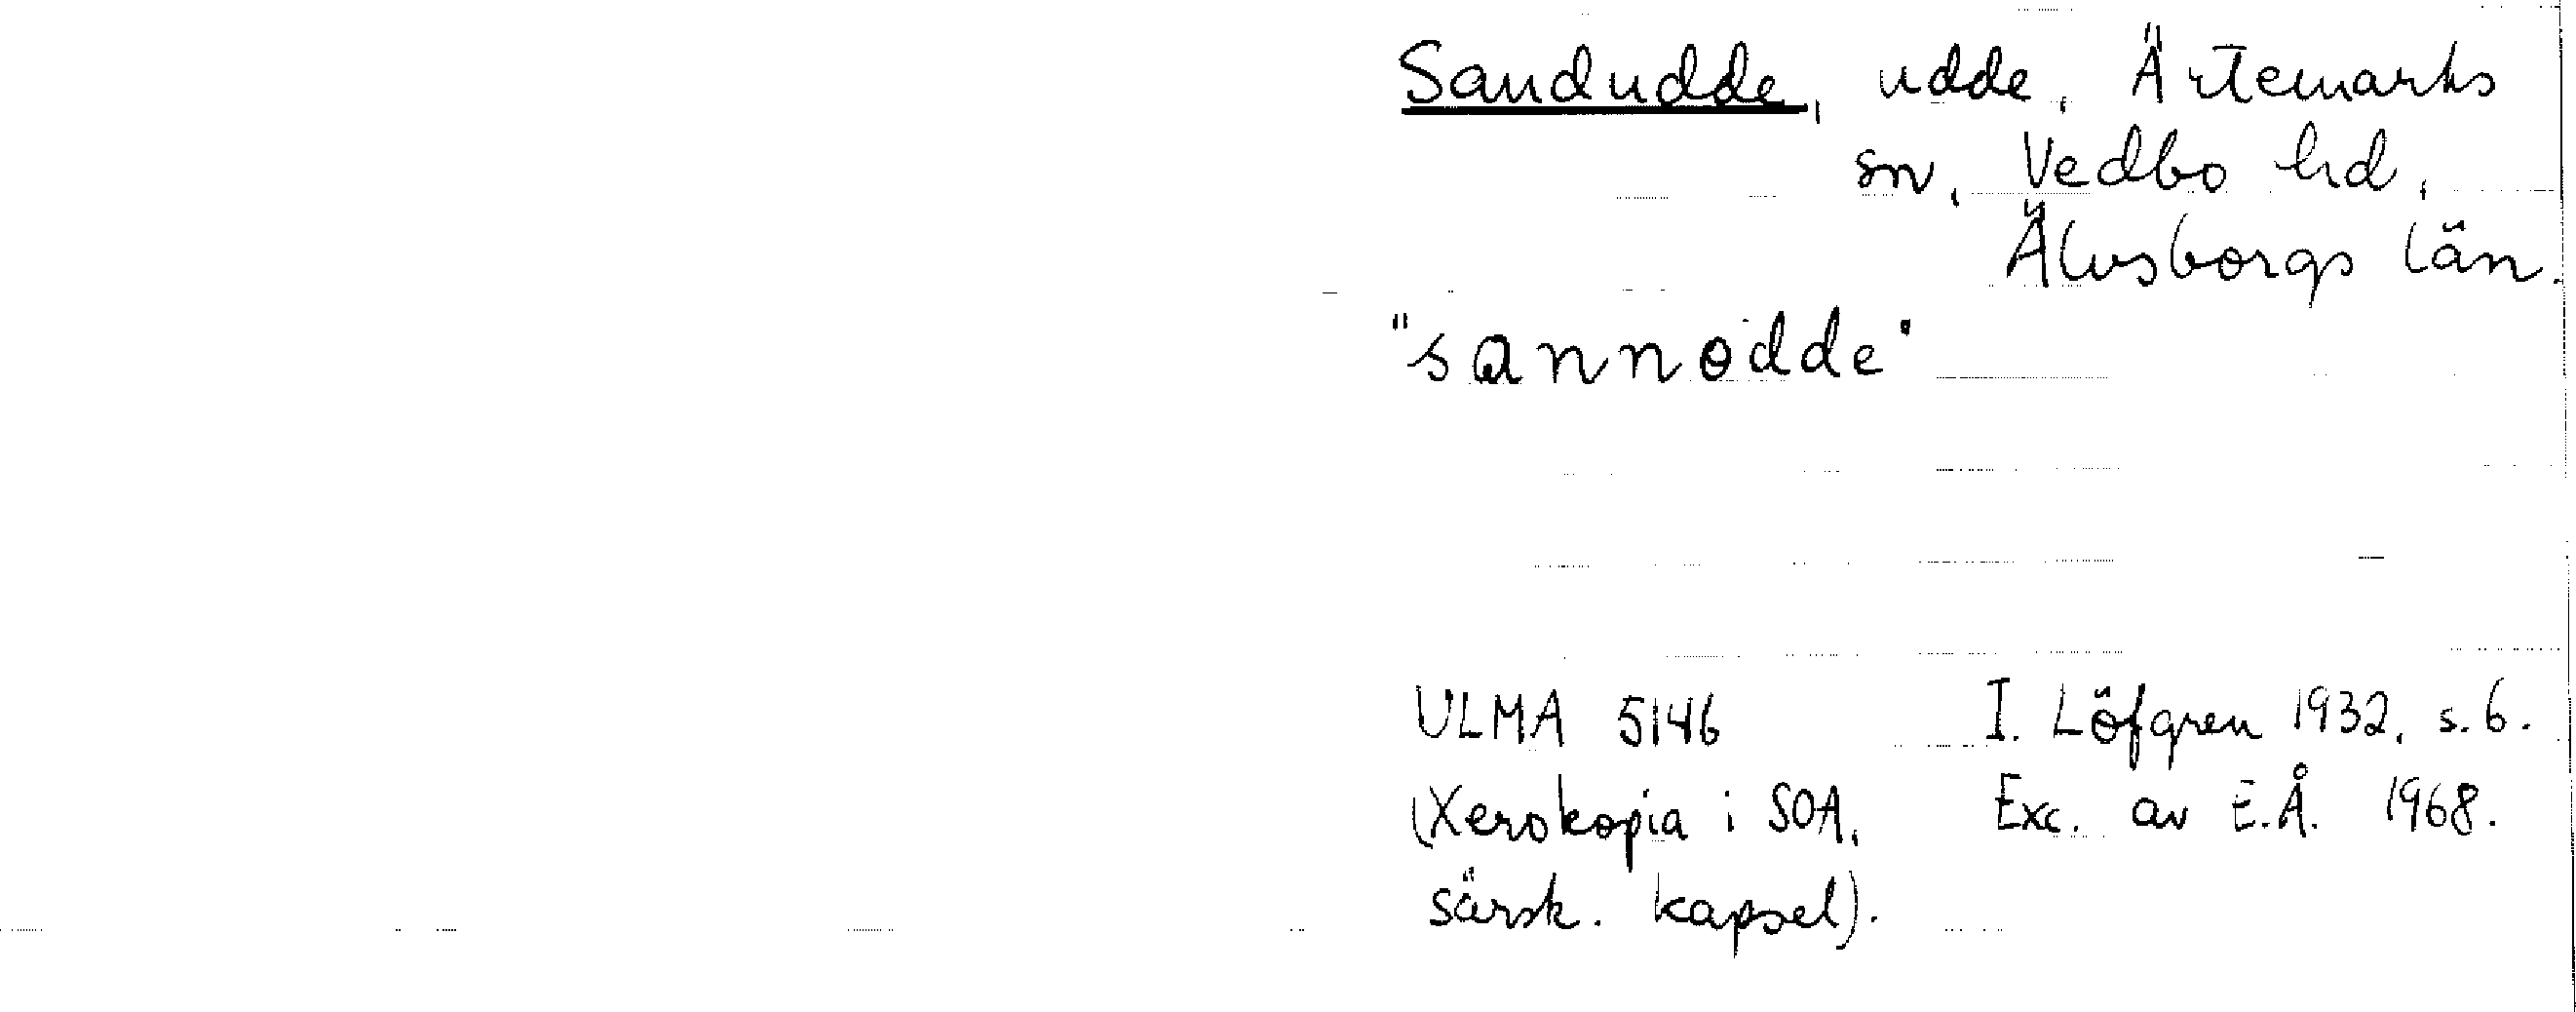 Sandudde, udde, Ärtemarks
sn, Vedbo hd,
Älvsborgs län.
"sannodde"
ULMA 5146 I. Löfgren 1932, s. 6.
(Xerokopia i SOA, Exc. av E.Å. 1968.
särsk. kapsel).